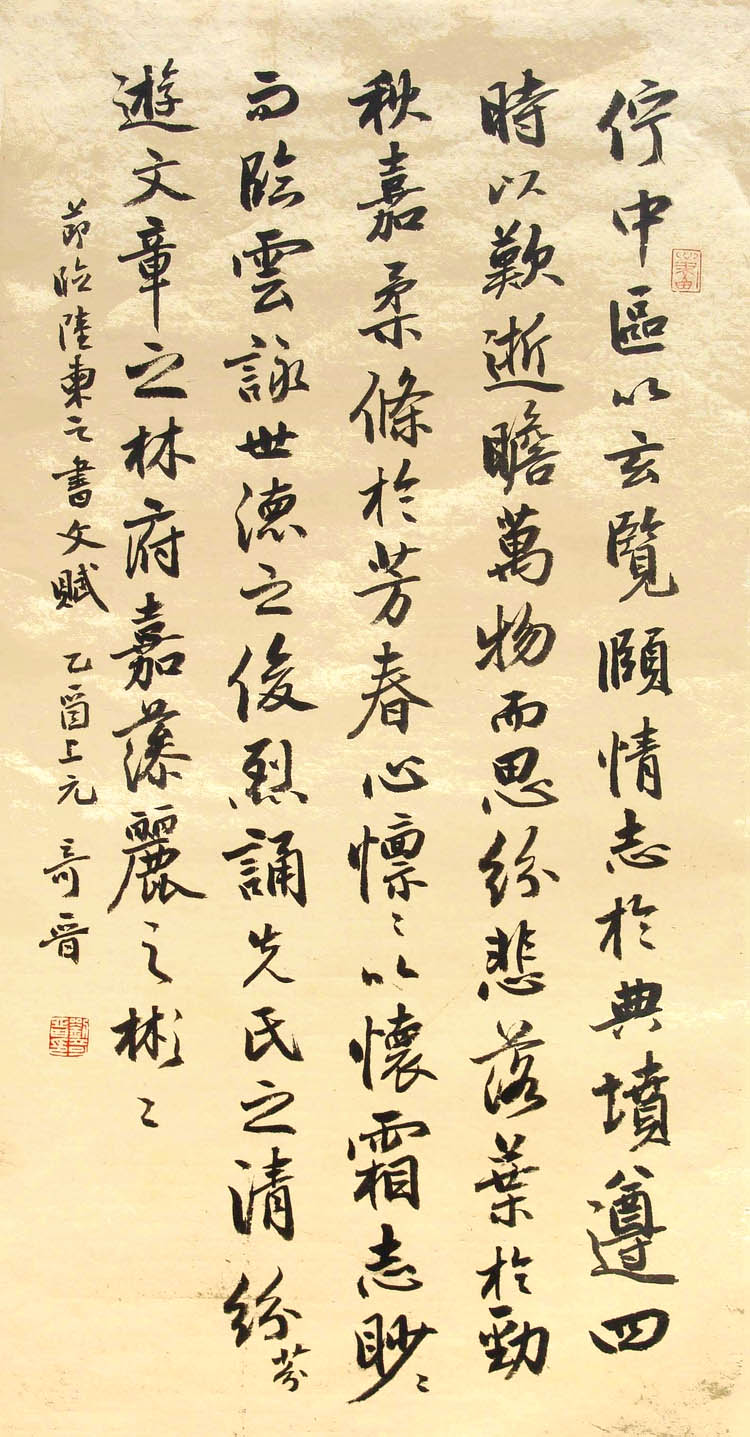 佇中區以玄覽頤情志於典墳遵四
時以歎逝瞻萬物而思紛悲落葉於勁
秋嘉柔條於芳春心懍〻以懷霜志眇〻
而臨雲詠世德之俊烈誦先氏之清紛芬
遊文章之林府嘉藻麗之彬〻
節臨陸柬之書文賦 乙酉上元 奇晋